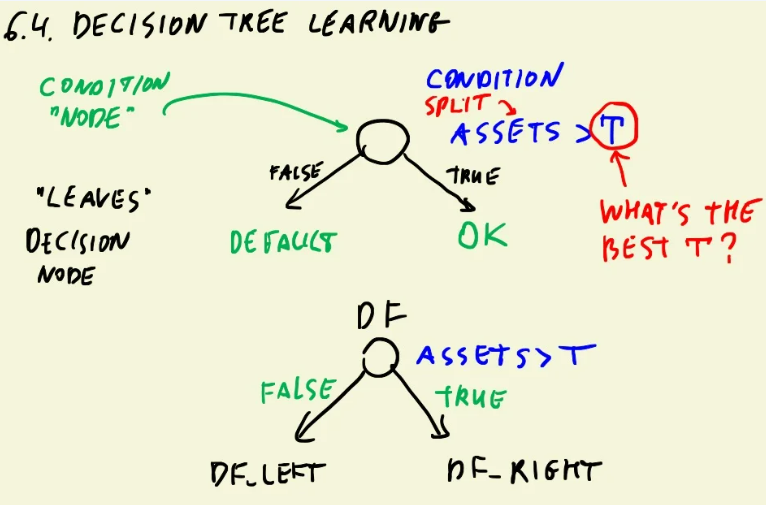 6.4. DECISION TREE LEARNING
CONDITION
"NODE"
CONDITION
SPLIT
ASSETS > T
FALSE
TRUE
"LEAVES"
DECISION
NODE
DEFAULT
OK
WHAT'S THE
BEST T?
DF
ASSETS > T
FALSE
TRUE
DF_LEFT
DF_RIGHT